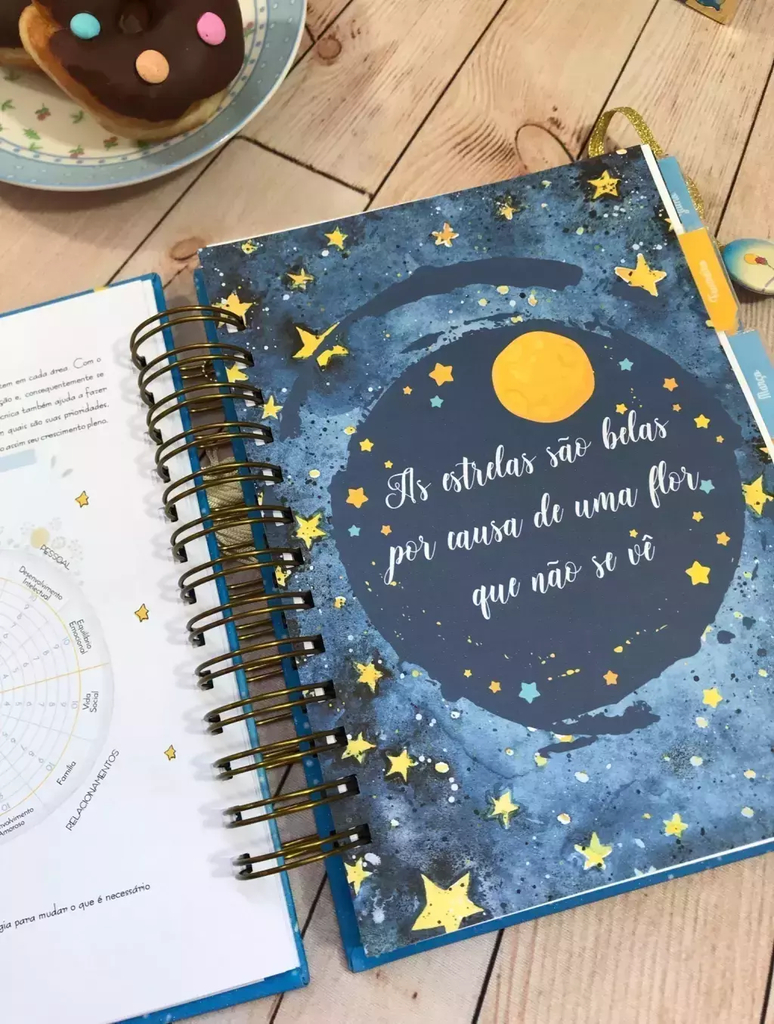 tem em cada área. Com o
ção e, consequentemente se
écnica também ajuda a fazer
m quais são suas prioridades.
o assim seu crescimento pleno.
PESSOAL
Desenvolvimento
Intelectual
Equilíbrio
Emocional
Vida
Social
Família
nvolvimento
Amoroso
RELACIONAMENTOS
gia para mudar o que é necessário
As estrelas são belas
por causa de uma flor
que não se vê
Março